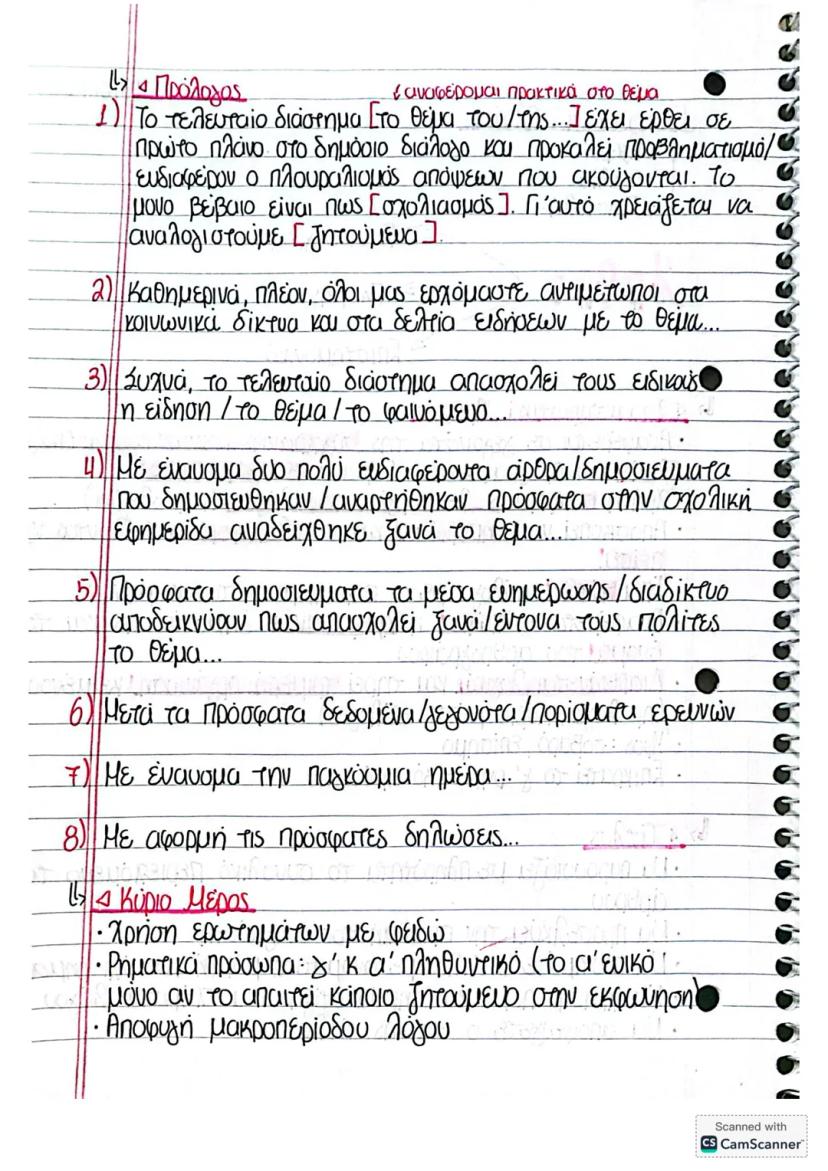 ↳ ◁ Πρόλογος ↙αναφέρομαι πρακτικά στο θέμα
1) Το τελευταίο διάστημα [το θέμα του/της...] έχει έρθει σε
πρώτο πλάνο στο δημόσιο διάλογο και προκαλεί προβληματισμό/
ενδιαφέρον ο πλουραλισμός απόψεων που ακούγονται. Το
μόνο βέβαιο είναι πως [σχολιασμός]. Γι'αυτό χρειάζεται να
αναλογιστούμε [ζητούμενα].
2) Καθημερινά, πλέον, όλοι μας ερχόμαστε αντιμέτωποι στα
κοινωνικά δίκτυα και στα δελτία ειδήσεων με το θέμα...
3) Συχνά, το τελευταίο διάστημα απασχολεί τους ειδικούς
η είδηση / το θέμα / το φαινόμενο...
4) Με έναυσμα δυο πολύ ενδιαφέροντα άρθρα/δημοσιεύματα
που δημοσιεύθηκαν / αναρτήθηκαν πρόσφατα στην σχολική
εφημερίδα αναδείχθηκε ξανά το θέμα...
5) Πρόσφατα δημοσιεύματα τα μέσα ενημέρωσης/διαδίκτυο
αποδεικνύουν πως απασχολεί ξανά/έντονα τους πολίτες
το θέμα...
6) Μετά τα πρόσφατα δεδομένα/γεγονότα/πορίσματα ερευνών
7) Με έναυσμα την παγκόσμια ημέρα...
8) Με αφορμή τις πρόσφατες δηλώσεις...
↳ ◁ Κύριο Μέρος
· Χρήση ερωτημάτων με φειδώ
· Ρηματικά πρόσωπα: γ' κ α' πληθυντικό (το α' ενικό
μόνο αν το απαιτεί κάποιο ζητούμενο στην εκφώνηση)
· Αποφυγή μακροπερίοδου λόγου
Scanned with
CS CamScanner